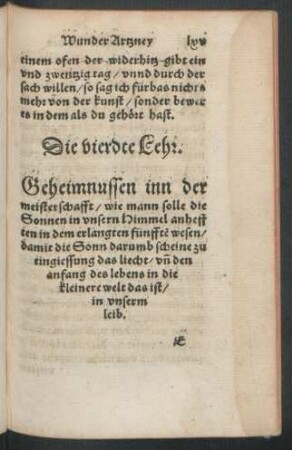 Wunder Artzney lxv
einem ofen der widerhitz gibt ein
vnd zwentzig tag / vnnd durch der
sach willen / so sag ich fürbas nichts
mehr von der kunst / sonder bewer
ts in dem als du gehört hast.
Die vierdte Lehr.
Geheimnussen inn der
meisterschafft / wie mann solle die
Sonnen in vnsern Himmel anheff
ten in dem erlangten fünffte wesen /
damit die Sonn darumb scheine zu
eingiessung das liecht / vñ den
anfang des lebens in die
kleinere welt das ist /
in vnserm
leib.